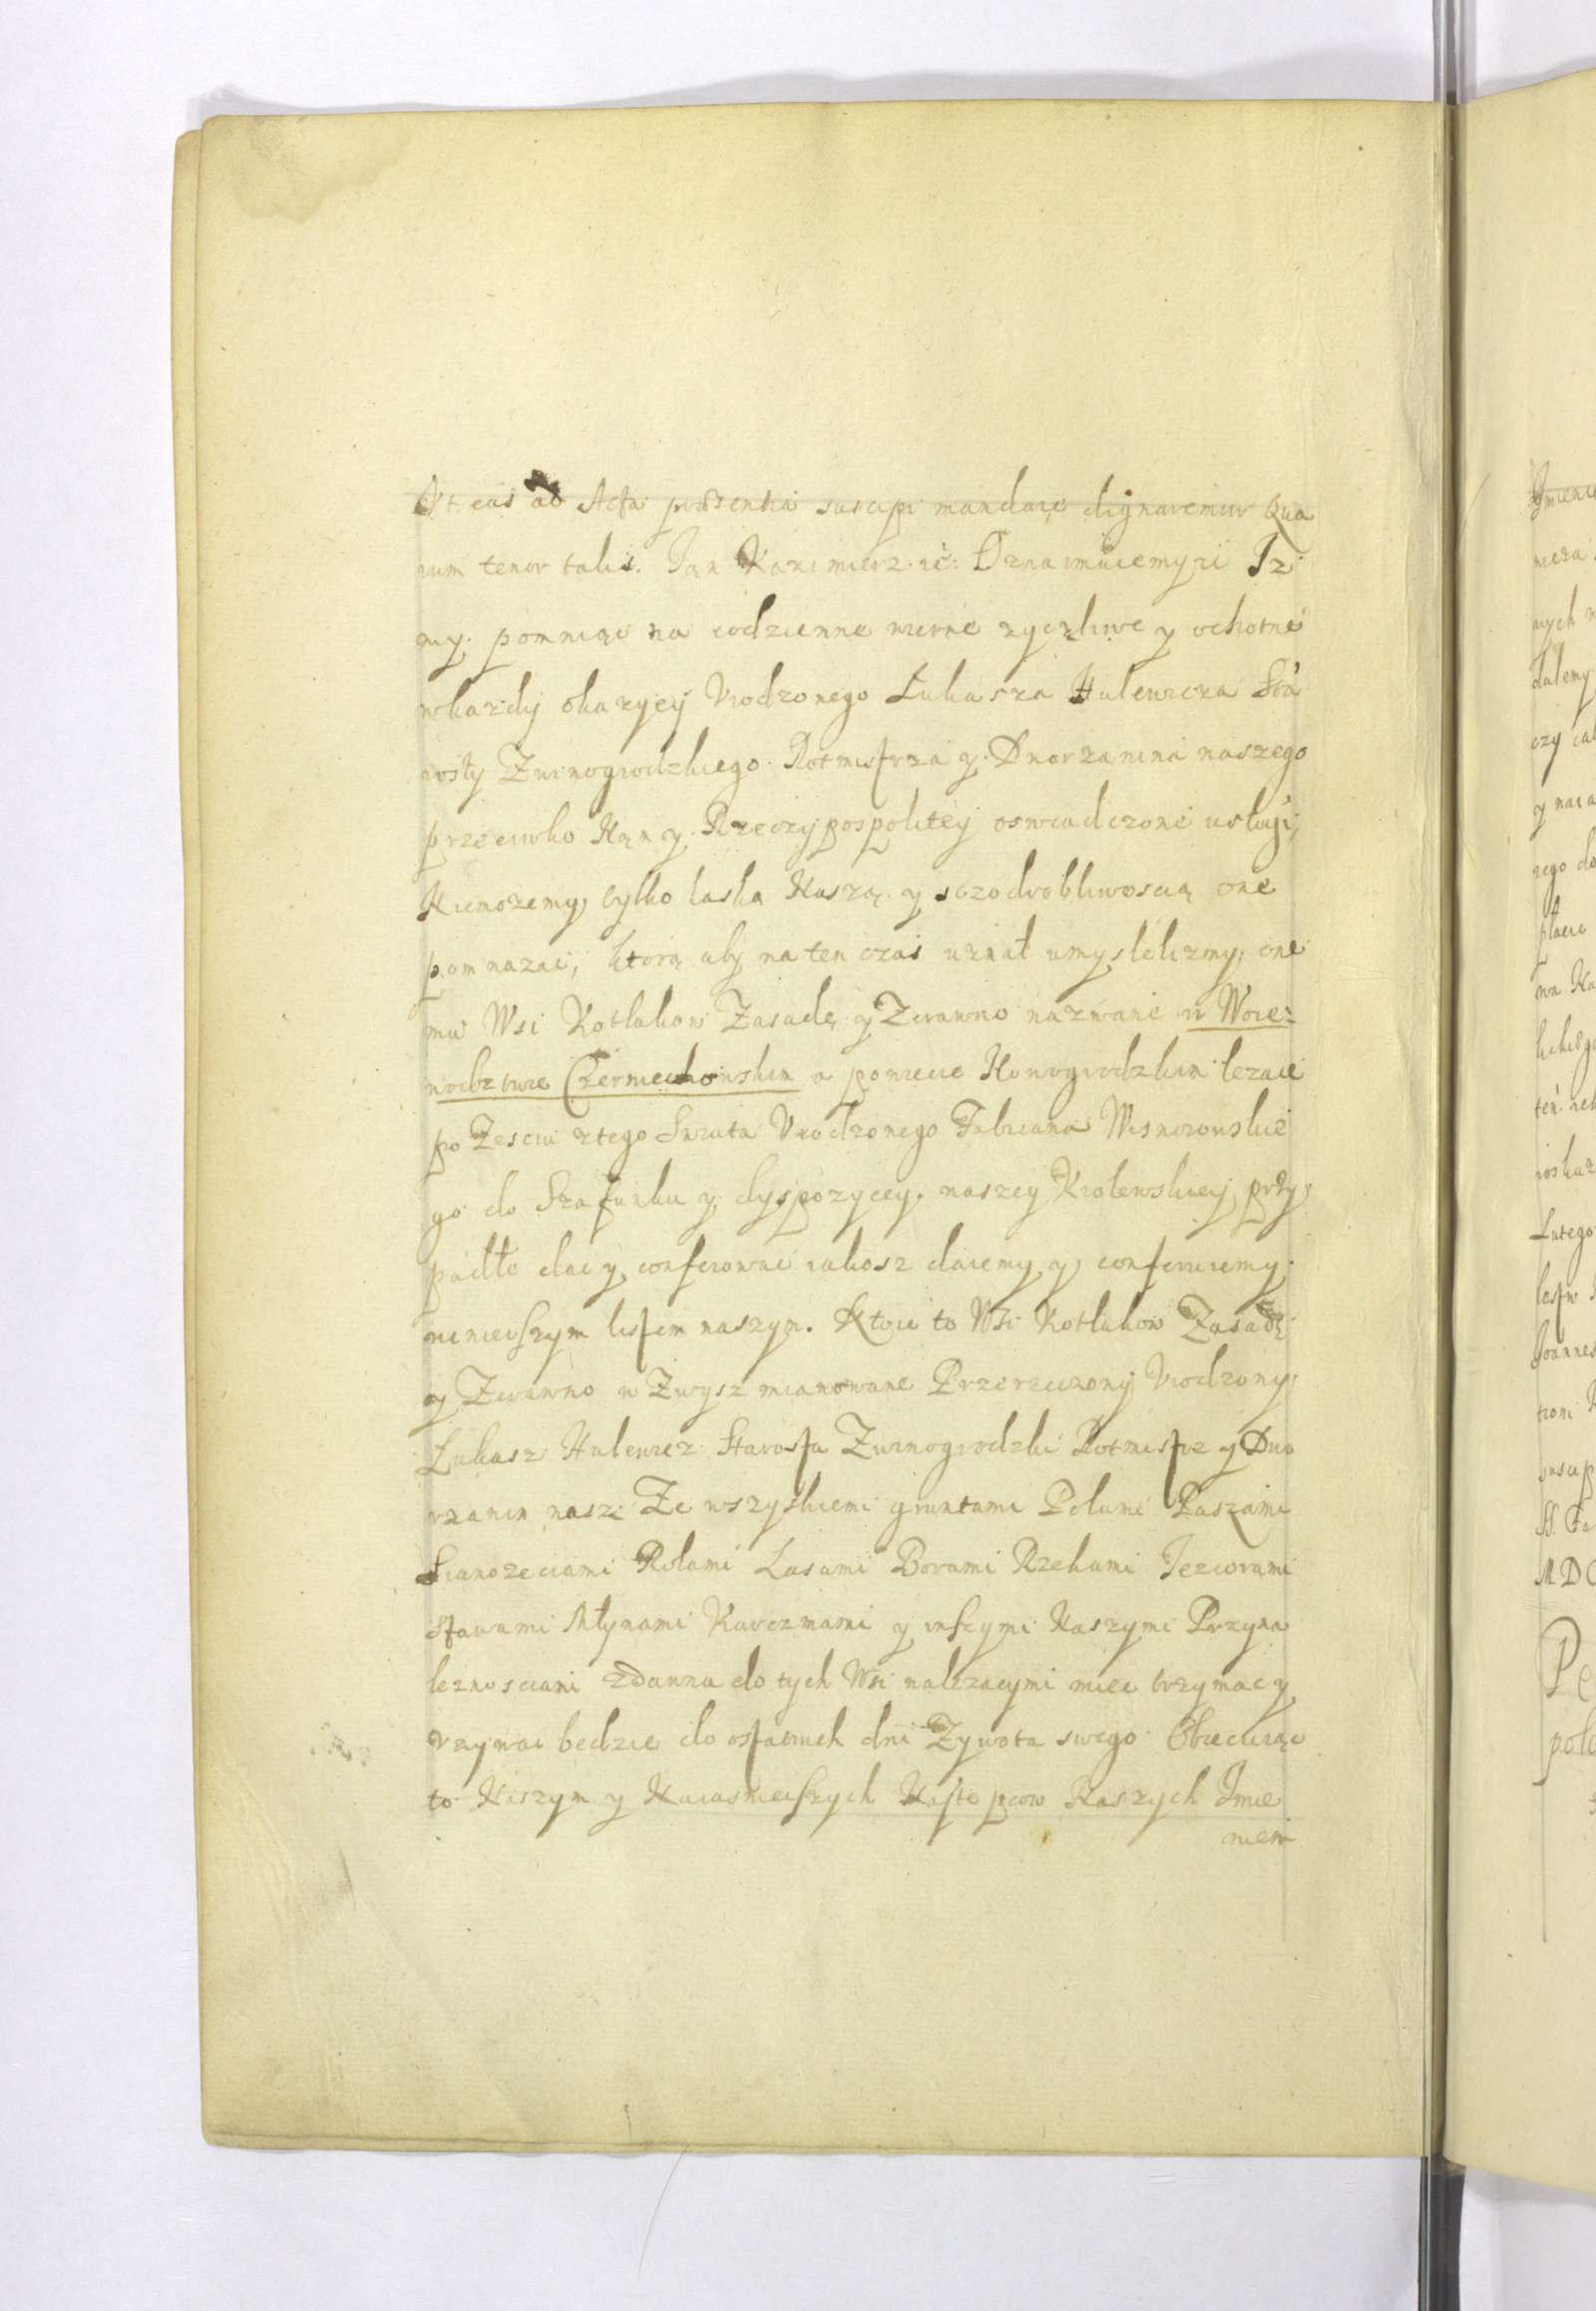 Vt eas ad Acta præsentia suscipi mandare dignaremur Qua
rum tenor talis. Jan Kazimierz. &c: Oznaimuiemy &c Iz
my. pomniąc na codzienne wierne zyczliwe y ochotne
wkazdy okazyey Vrodzonego Łukasza Hulewicza Sta
rosty Zwinogrodzkiego. Rotmistrza y. Dworzanina naszego
przeciwko Nąm y. Rzeczypospolitey oswiadczone usługi,
Niemozemy, tylko łaską Naszą. y sczodrobliwoscią one
pomnazac, ktorą aby na ten czas uznał umyslilizmy, one
mu Wsi Kotlakow Zasadę y Zerawno nazwane w Woie:
wodztwie Czerniechowskim a powiecie Nowogrodzkim lezące
po Zesciu ztego Swiata Vrodzonego Fabiana Wisniowskie
go do Szafunku y dyspozycey. naszey Krolewskiey, przy
padłe dac y, conferowac iakosz daiemy y, conferuiemy.
ninieiszym listem naszym. Ktore to Wsi Kotlakow Zasadę
y Zerawno w Zwysz mianowane Przerzeczony Vrodzony.
Łukasz Hulewicz Starosta Zwinogrodzki Rotmistrz y Dwo
rzanin nasz: Ze wszystkiemi gruntami Polami Paszami
Sianozeciami Rolami Lasami Borami Rzekami Jeziorami
Stawami Młynami Karczmami y inszymi Naszymi Przyna
leznosciami zdawna do tych Wsi nalezacymi miec trzymac y
vzywac bedzie do ostatnich dni Zywota swego Obiecuiąc
to Naszym y Naiasnieiszych Nastepcow Naszych Imie
niem